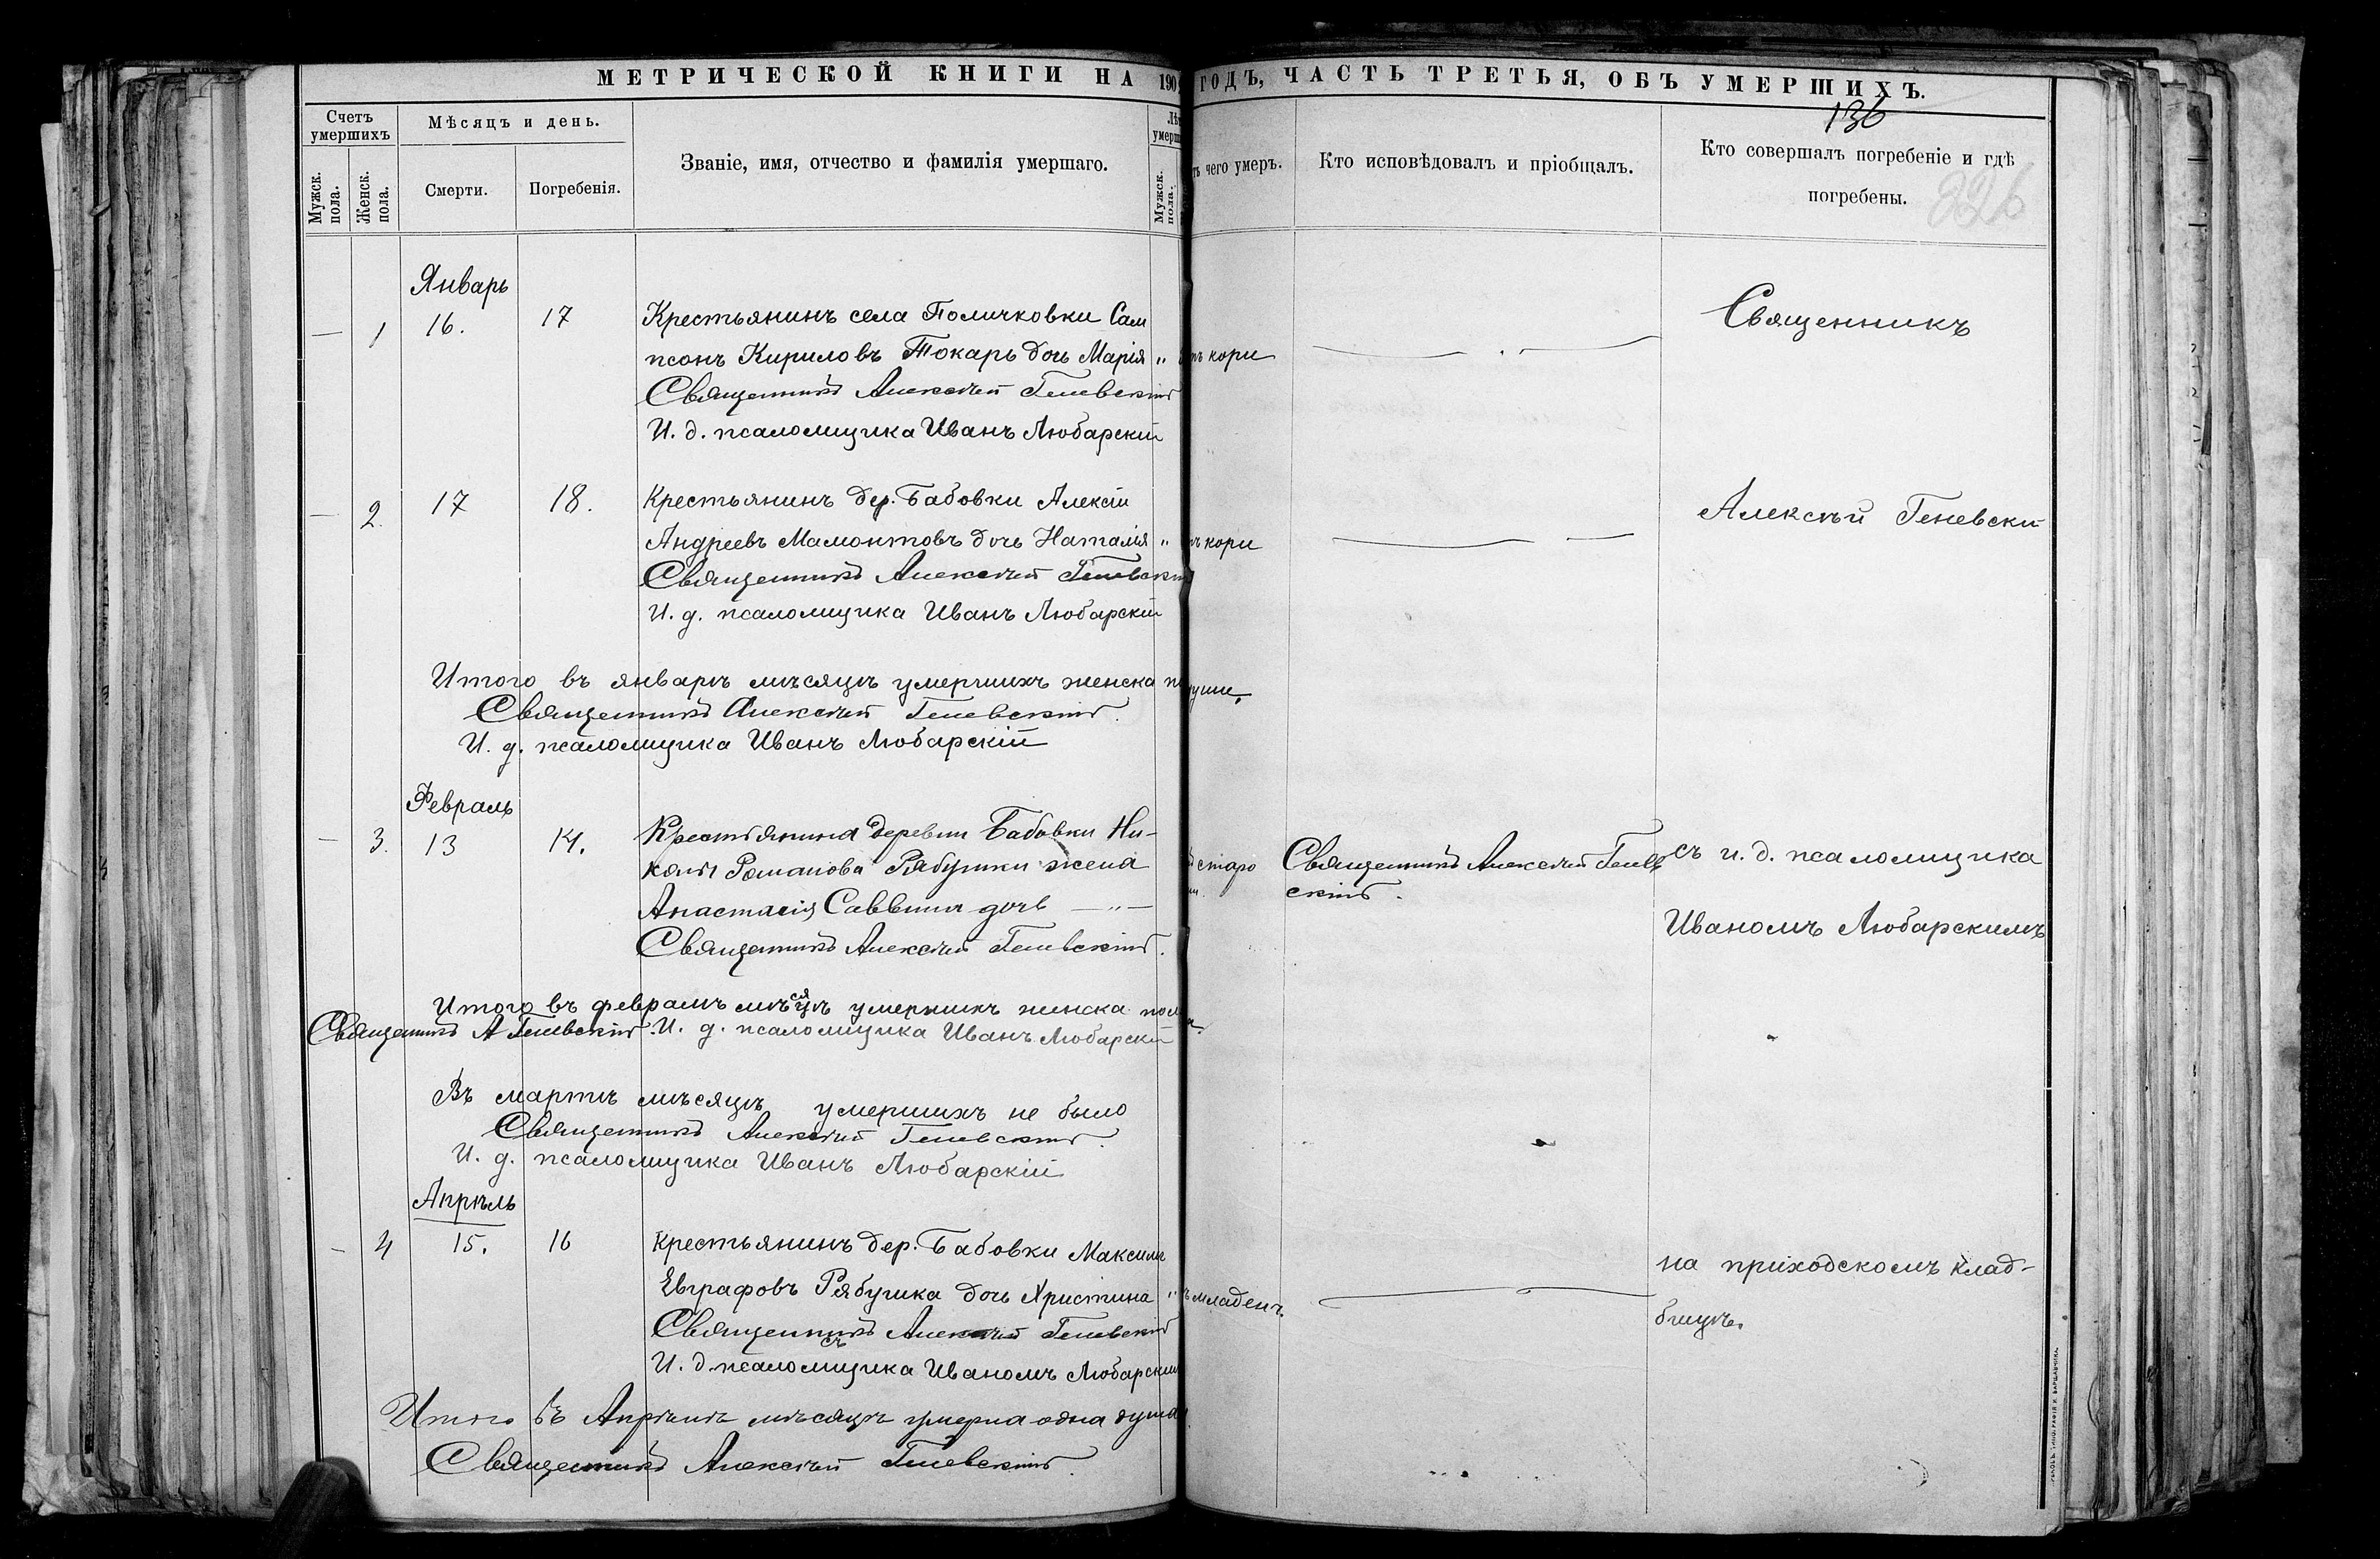 МЕТРИЧЕСКОЙ КНИГИ НА 190 ГОДЪ, ЧАСТЬ ТРЕТЬЯ, ОБЪ УМЕРШИХЪ.
136
226
Счетъ умершихъ
Мужск. пола.
Женск. пола.
Мѣсяцъ и день.
Смерти.
Погребенія.
Званіе, имя, отчество и фамилія умершаго.
Мужск. пола.
чего умеръ.
Кто исповѣдовалъ и пріобщалъ.
Кто совершалъ погребеніе и гдѣ
погребены.
Январь
— 1 16. 17 Крестьянинъ села Поличковки Сам
псонъ Кириловъ Токарь дочь Марія „ кори
Священникъ Алексѣй Геневскій
И. д. псаломщика Иванъ Любарскій
Священникъ
— 2. 17 18. Крестьянинъ дер. Бабовки Алексій
Андреевъ Мамонтовъ дочь Наталія „ кори
Священникъ Алексѣй Геневскій
И. д. псаломщика Иванъ Любарскій
Алексѣй Геневскій
Итого въ январѣ мѣсяцѣ умершихъ женска
Священникъ Алексѣй Геневскій.
И. д. псаломщика Иванъ Любарскій
Февраль
— 3. 13 14. Крестьянина деревни Бабовки Ни-
колы Романова Рябушки жена
Анастасія Саввина дочь — „ —
Священникъ Алексѣй Геневскій.
старо
Священникъ Алексѣй Генев
скій.
съ и. д. псаломщика
Иваномъ Любарскимъ
Итого въ февралѣ мѣсяцѣ умершихъ женска пола
Священникъ А Геневскій. И. д. псаломщика Иванъ Любарскій
Въ мартѣ мѣсяцѣ умершихъ не было
Священникъ Алексѣй Геневскій.
И. д. псаломщика Иванъ Любарскій
Апрѣль
— 4 15. 16 Крестьянинъ дер. Бабовки Максимъ
Евграфовъ Рябушка дочь Христина „ младен.
Священникъ Алексѣй Геневскій
съ
И. д. псаломщика Иваномъ Любарским
на приходскомъ клад-
бищѣ.
Итого въ Апрѣлѣ мѣсяцѣ умерла одна душа
Священникъ Алексѣй Геневскій.